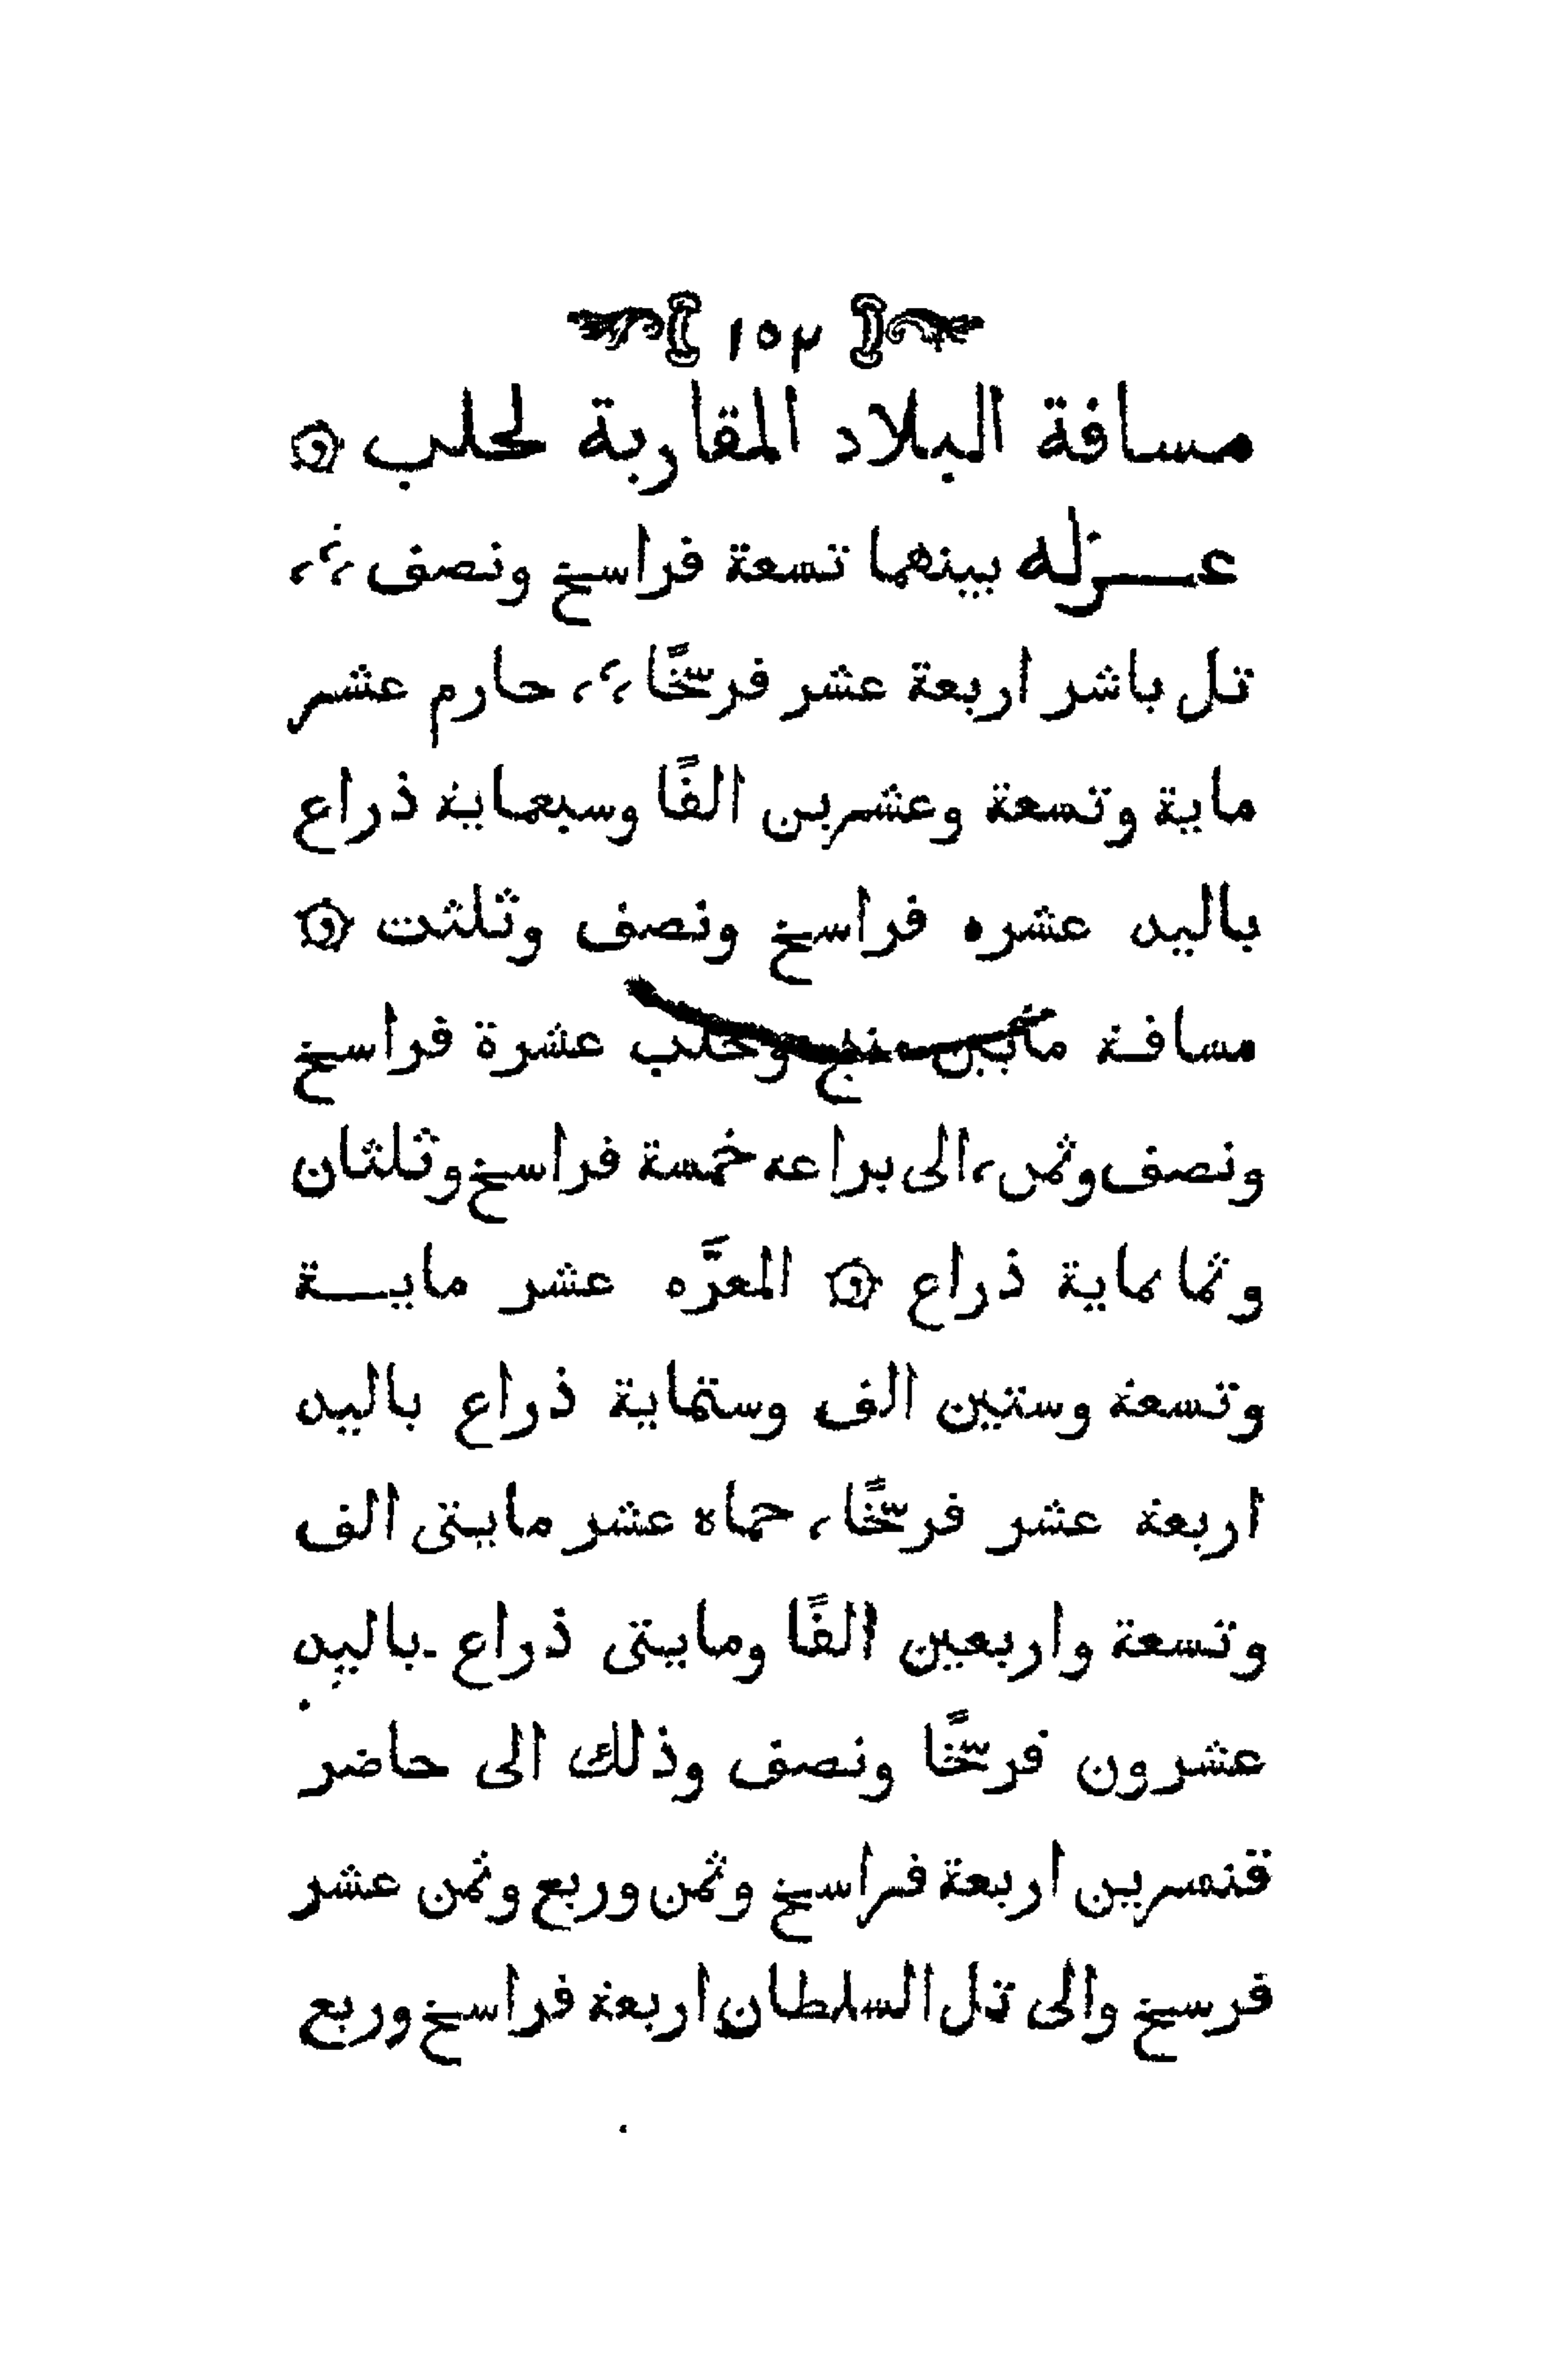 ١٥٣
مسافة البلاد المقاربة لحلب
عـــزله بينهما تسعة فراسخ ونصف ،،
تل باشر اربعة عشر فرسخًا ،، حارم عشر
ماية وتسعة وعشرين الفًا وسبعماية ذراع
باليد عشره فراسخ ونصف وثلثت
مسافة مابين منبج وحلب عشرة فراسخ
ونصف وثمن، الى براعه خمسة فراسخ وثلثان
وثمانماية ذراع المعرَّه عشر مايـــة
وتسعة وستين الف وستماية ذراع باليد
اربعة عشر فرسخًا، حماه عشر مايتى الف
وتسعة واربعين الفًا ومايتى ذراع باليد
عشرون فرسخًا ونصف وذلك الى حاضر
قنسرين اربعة فراسخ وثمن وربع وثمن عشر
فرسخ والى تل السلطان اربعة فراسخ وربع